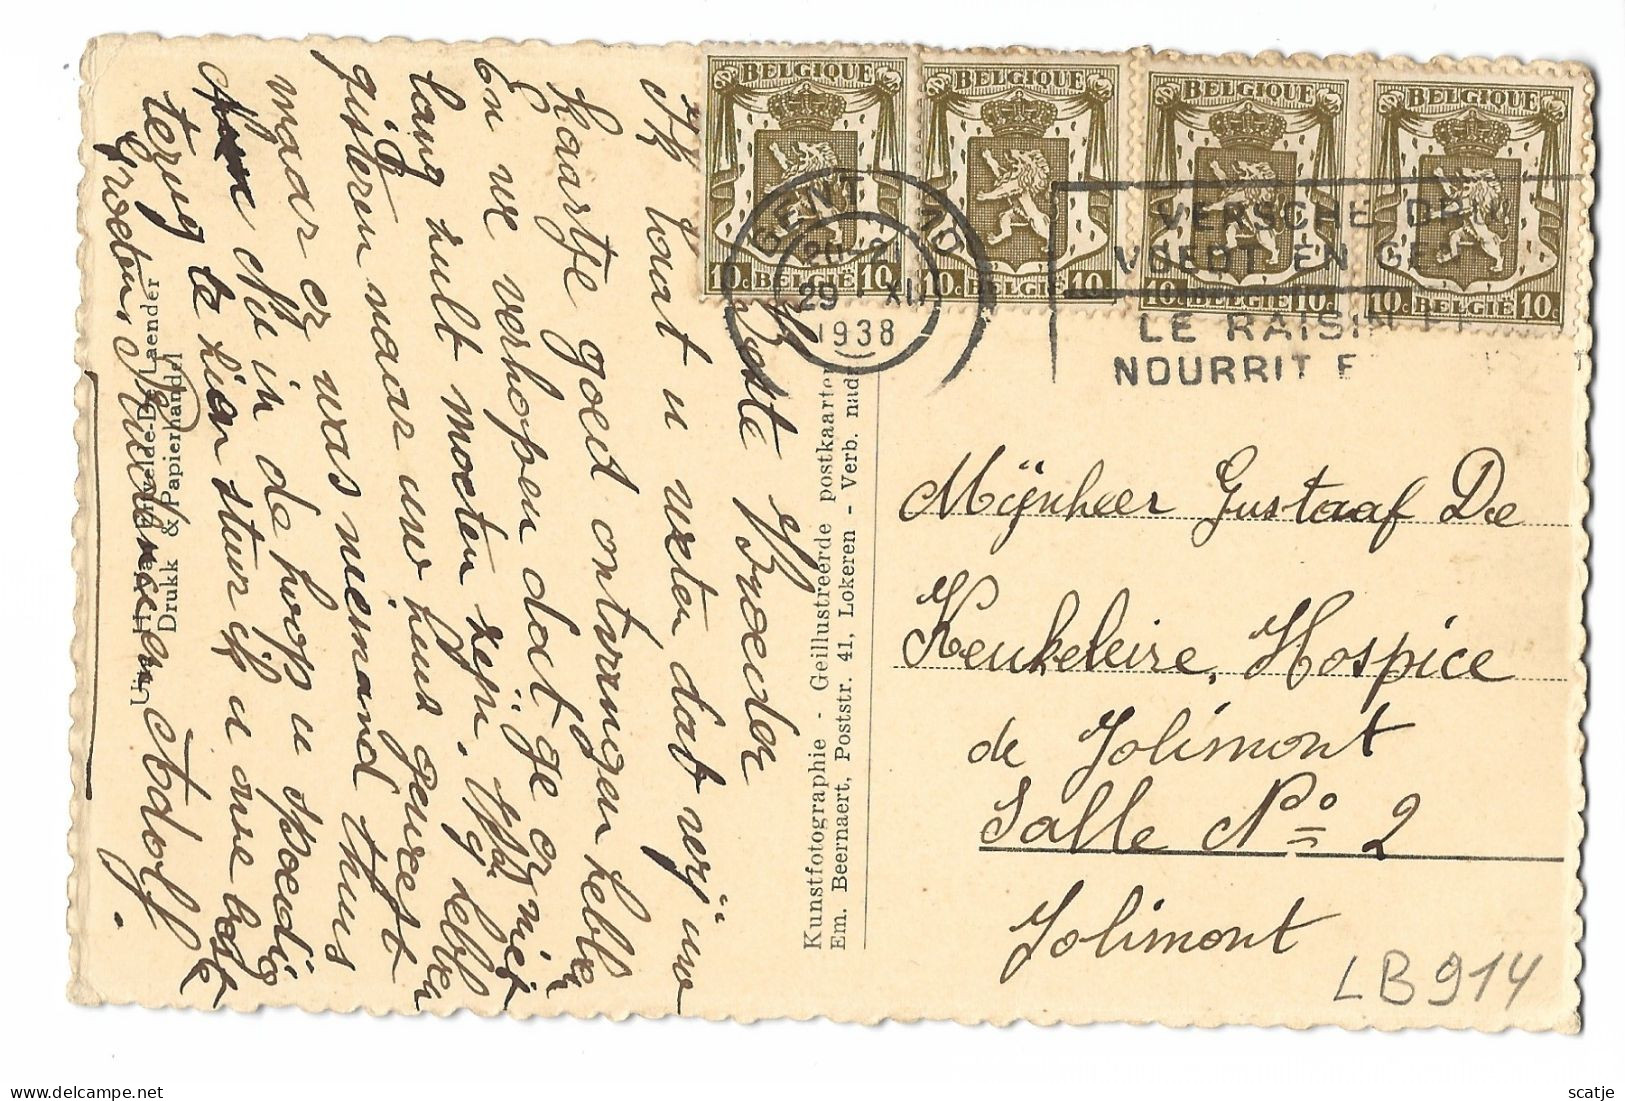 BELGIQUE BELGIQUE BELGIQUE BELGIQUE
10c BELGIË 10c 10c BELGIË 10c 10c BELGIË 10c 10c BELGIË 10c
GENT
29 XII
1938
VERSCHE
VOEDT EN
LE RAISIN ET
NOURRIT
Beste Broeder
Ik laat u weten dat wij uw
kaartje goed ontvangen hebben
En we verhopen dat ge er niet
lang zult moeten zijn. Wij hebben
gisteren naar uw huis geweest
maar er was niemand thuis
in de hoop u spoedig
terug te zien stuur ik u onze beste
Groeten Adolf.
Drukk & Papierhandel
Kunstfotographie - Geillustreerde postkaarten
Em. Beernaert, Poststr. 41, Lokeren - Verb. nad
Mijnheer Gustaaf De
Keukeleire, Hospice
de Jolimont
Salle No 2
Jolimont
LB914
scatje